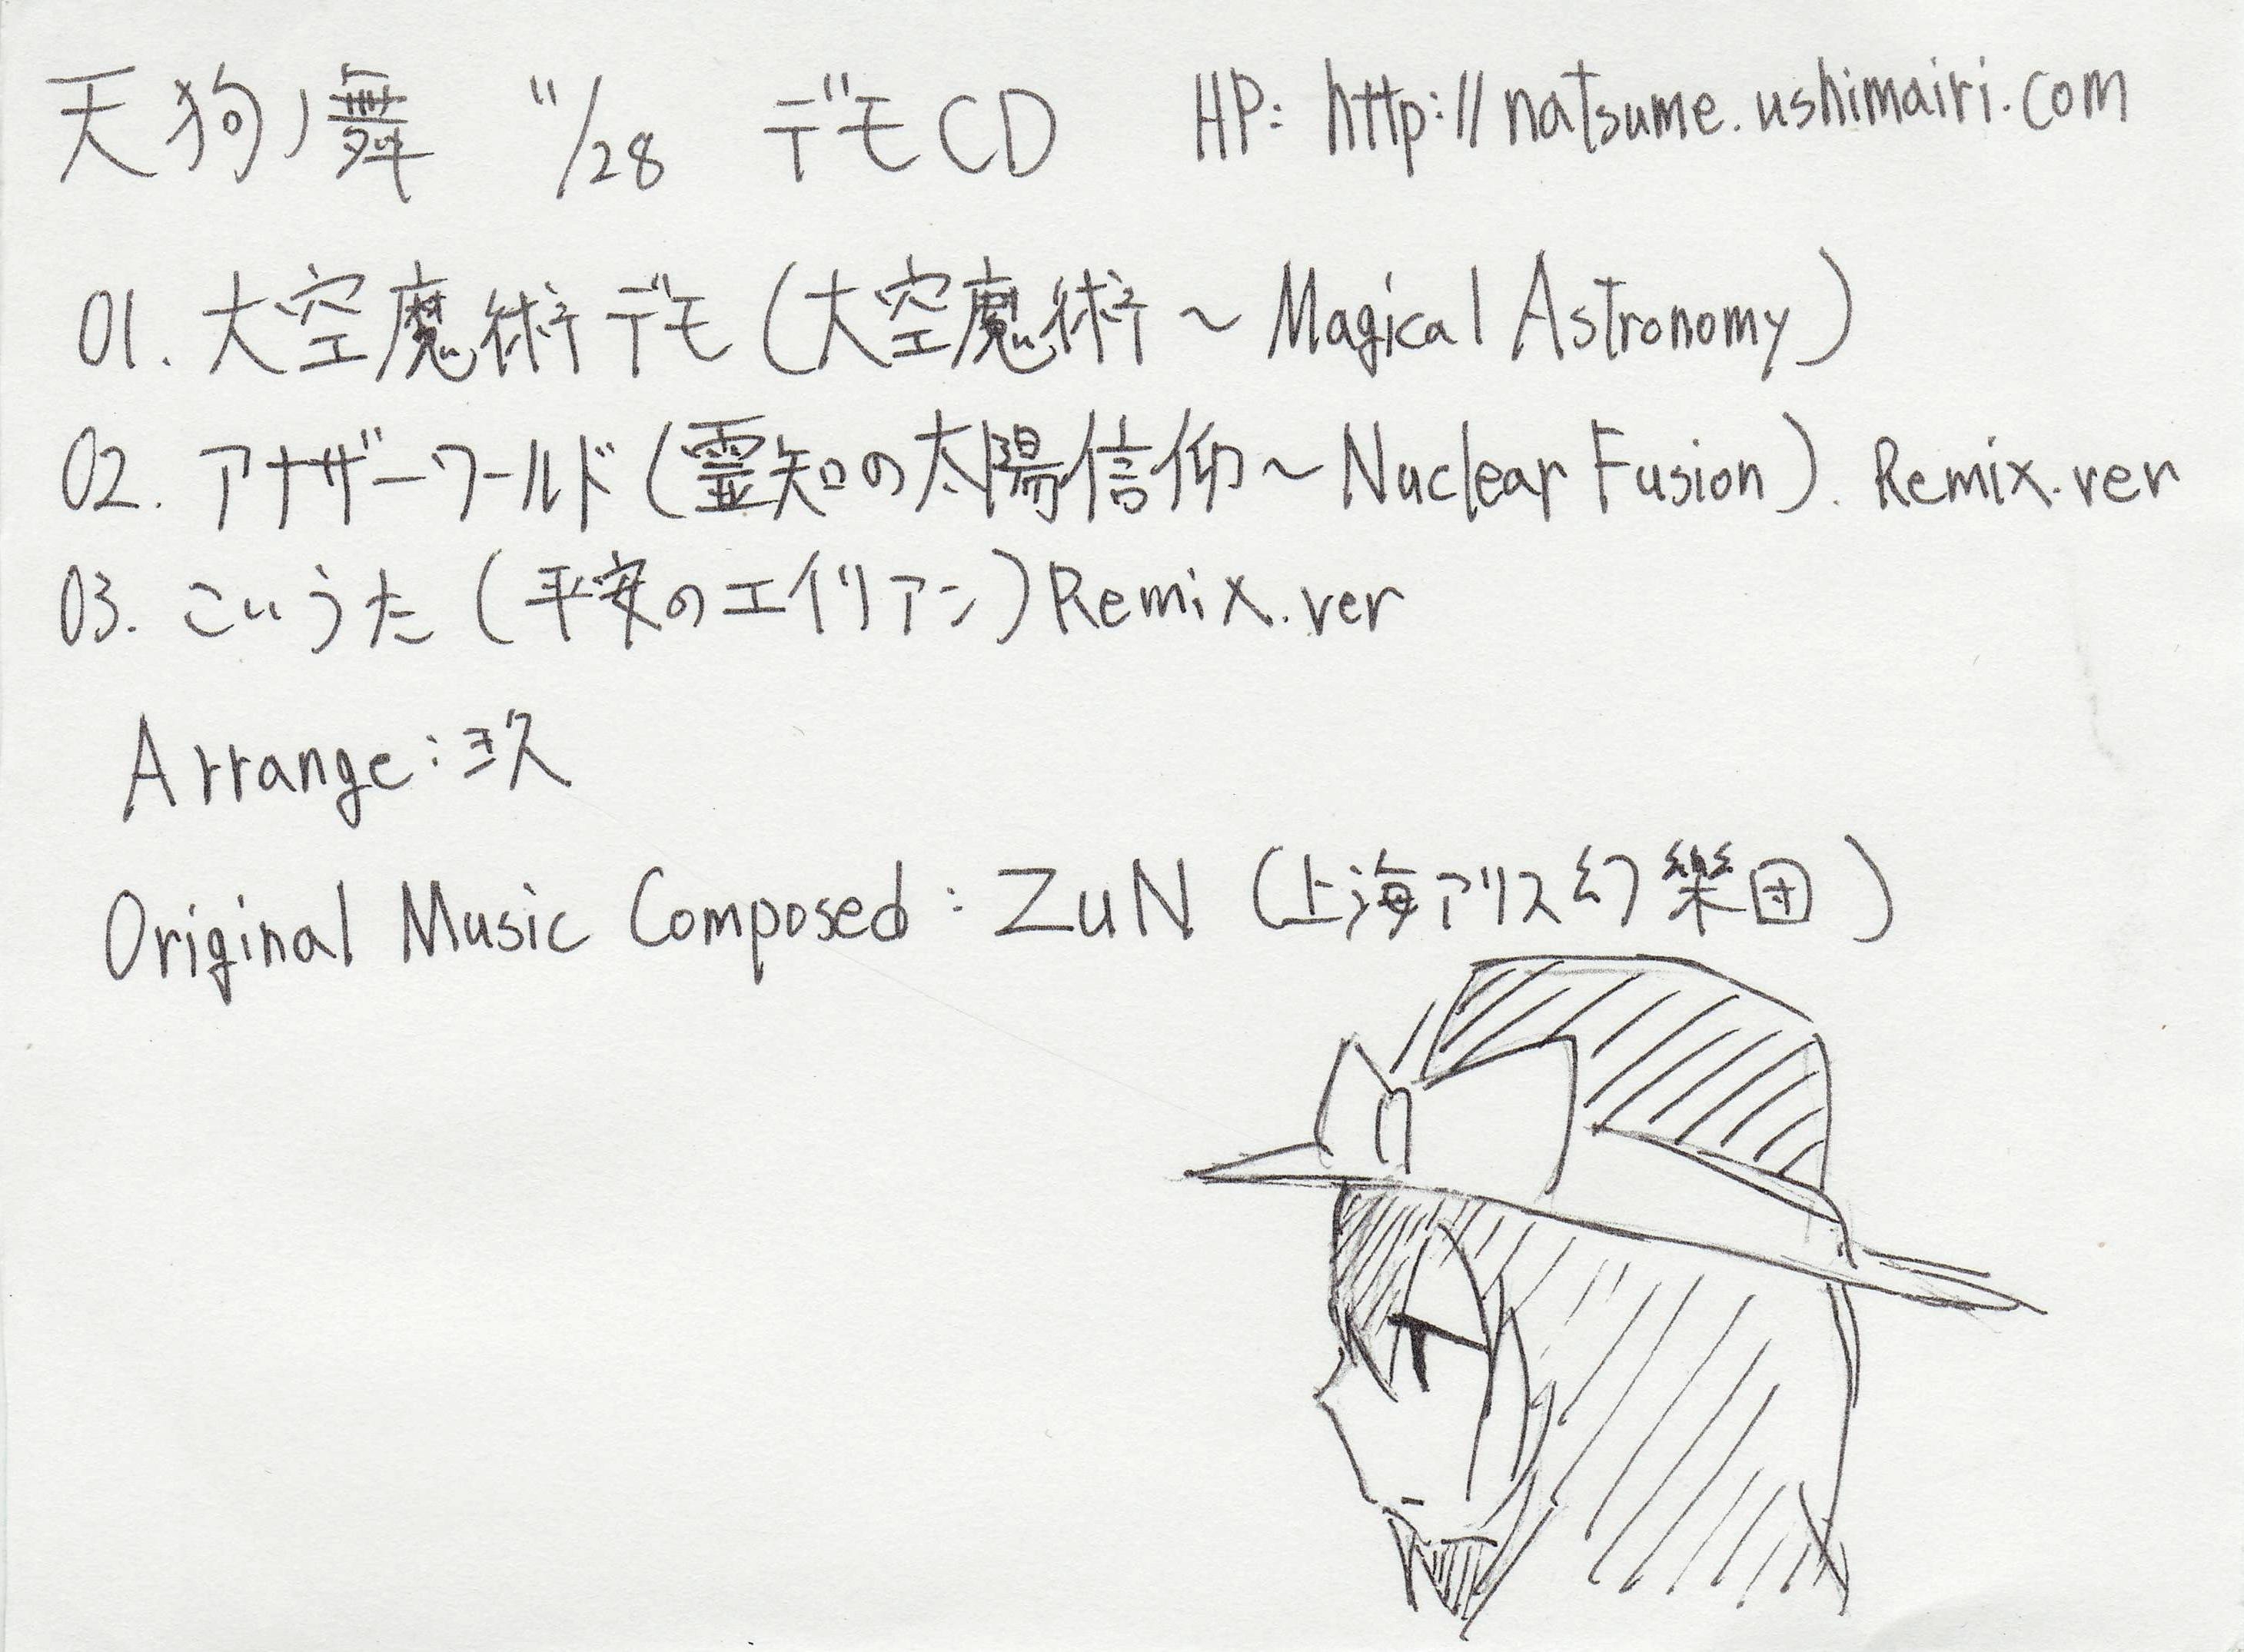 天狗ノ舞 11/28 デモCD HP: http://natsume.ushimairi.com
01. 大空魔術デモ (大空魔術 ~ Magical Astronomy)
02. アナザーワールド (霊知の太陽信仰 ~ Nuclear Fusion). Remix.ver
03. こいうた (平安のエイリアン) Remix.ver
Arrange:
Original Music Composed : ZUN (上海アリス幻樂団)